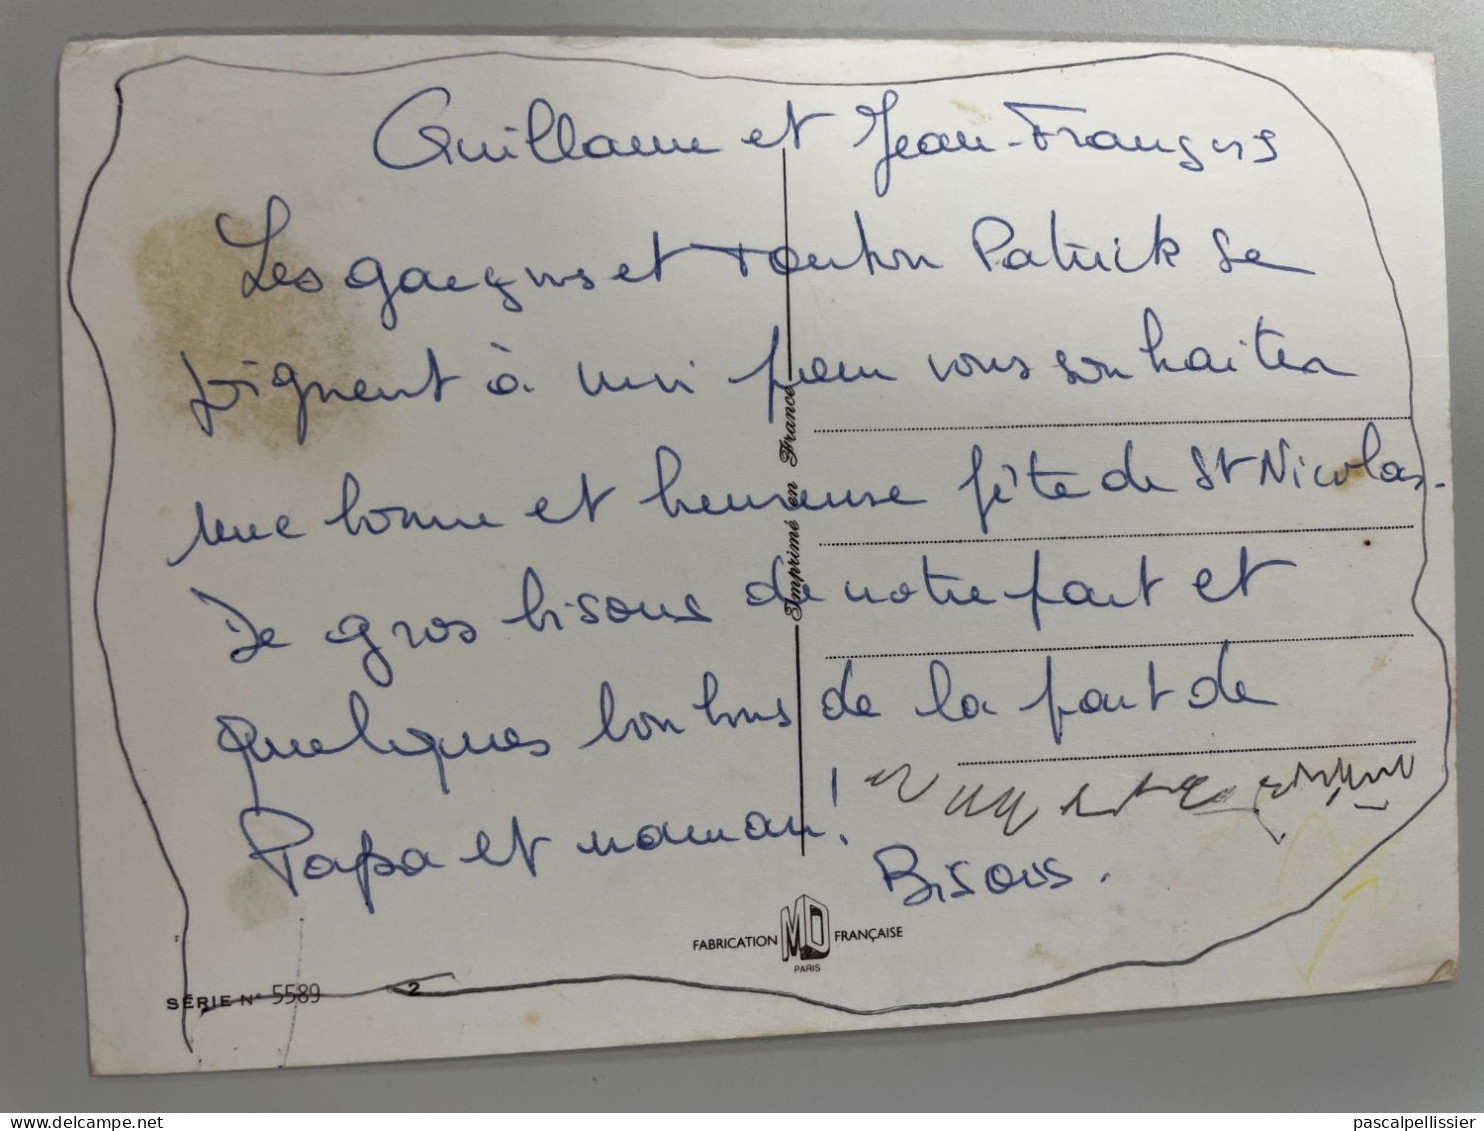 Guillaume et Jean-François
Les garçons et Tonton Patrick se
joignent à moi pour vous souhaiter
une bonne et heureuse fête de St Nicolas.
De gros bisous de notre part et
quelques bonbons de la part de
Papa et maman !
Bisous.
Imprimé en France
FABRICATION MD FRANÇAISE
PARIS
SÉRIE N° 5589
2
pascalpellissier